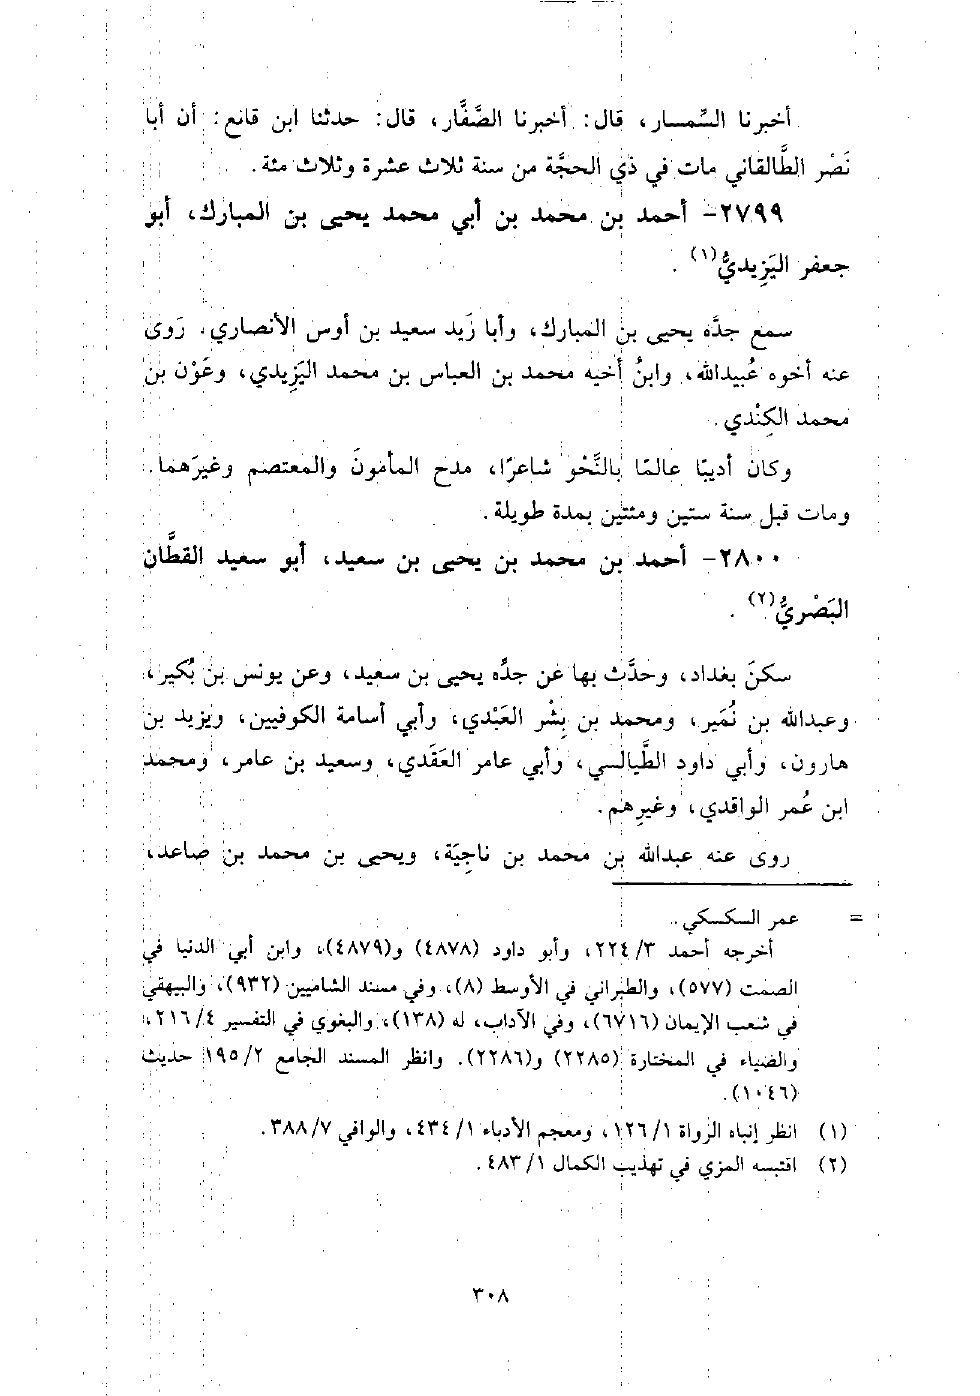 أخبرنا السِّمسار، قال: أخبرنا الصَّفَّار، قال: حدثنا ابن قانع: أن أبا
نَصْر الطَّالقاني مات في ذي الحجَّة من سنة ثلاث عشرة وثلاث مئة.
٢٧٩٩- أحمد بن محمد بن أبي محمد يحيى بن المبارك، أبو
جعفر اليَزِيديُّ(١).
سمع جدَّه يحيى بن المبارك، وأبا زَيد سعيد بن أوس الأنصاري. رَوى
عنه أخوه عُبيدالله، وابنُ أخيه محمد بن العباس بن محمد اليَزِيدي، وعَوْن بن
محمد الكِنْدي.
وكان أديبًا عالمًا بالنَّحْو شاعرًا، مدح المأمونَ والمعتصم وغيرَهما.
ومات قبل سنة ستين ومئتين بمدة طويلة.
٢٨٠٠- أحمد بن محمد بن يحيى بن سعيد، أبو سعيد القطَّان
البَصْريُّ(٢).
سكنَ بغداد، وحدَّث بها عن جدِّه يحيى بن سعيد، وعن يونس بن بُكير،
وعبدالله بن نُمَير، ومحمد بن بِشْر العَبْدي، وأبي أسامة الكوفيين، ويزيد بن
هارون، وأبي داود الطَّيالسي، وأبي عامر العَقَدي، وسعيد بن عامر، ومحمد
ابن عُمر الواقدي، وغيرِهم.
روى عنه عبدالله بن محمد بن ناجِيَة، ويحيى بن محمد بن صاعد،
= عمر السكسكي.
أخرجه أحمد ٣/ ٢٢٤، وأبو داود (٤٨٧٨) و(٤٨٧٩)، وابن أبي الدنيا في
الصمت (٥٧٧)، والطبراني في الأوسط (٨)، وفي مسند الشاميين (٩٣٢)، والبيهقي
في شعب الإيمان (٦٧١٦)، وفي الآداب، له (١٣٨)، والبغوي في التفسير ٤/ ٢١٦،
والضياء في المختارة (٢٢٨٥) و(٢٢٨٦). وانظر المسند الجامع ٢/ ١٩٥ حديث
(١٠٤٦).
(١) انظر إنباه الرواة ١/ ١٢٦، ومعجم الأدباء ١/ ٤٣٤، والوافي ٧/ ٣٨٨.
(٢) اقتبسه المزي في تهذيب الكمال ١/ ٤٨٣.
٣٠٨